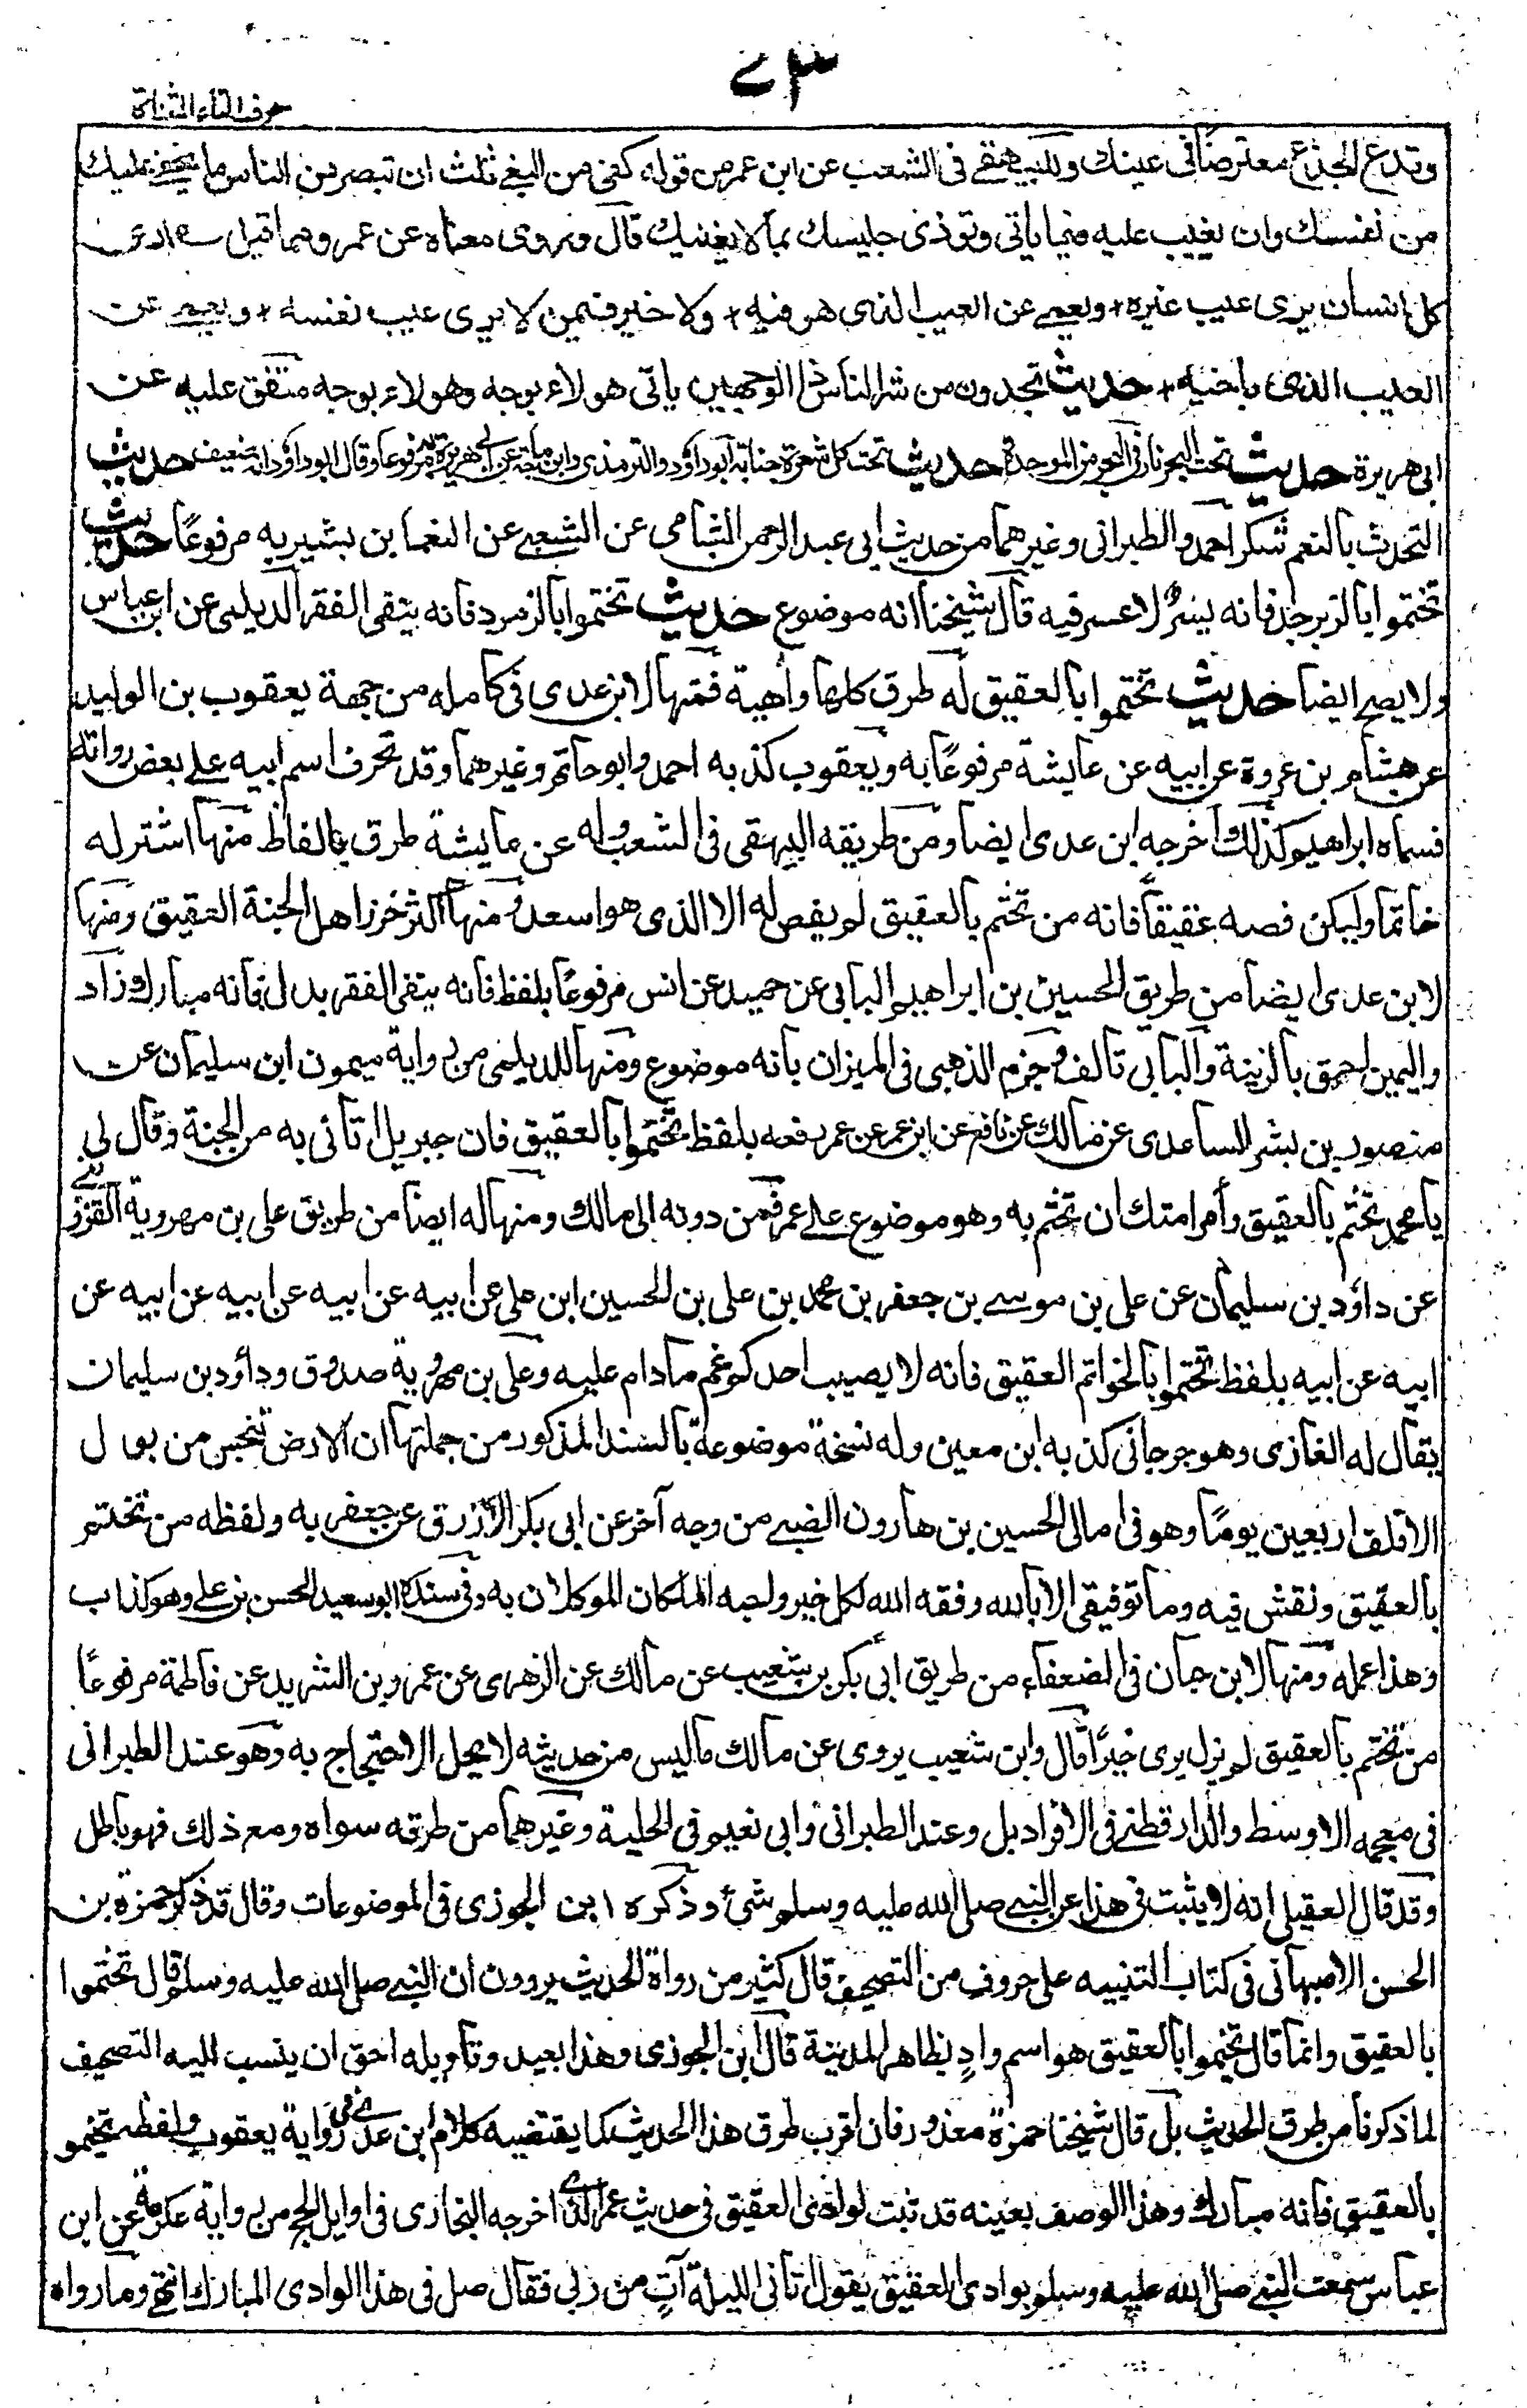 ٧٣
حرف التاء المثناة
وتدع الجذع معترضا فى عينك وللبيهقے فى الشعب عن ابن عمر من قوله كفى من البغے ثلث ان تبصر من الناس ما يخفے عليك
من نفسك وان تعيب عليه فيما ياتى وتوذى جليسك بما لا يعنيك قال ويروى معناه عن عمر ومما قيل ارى
كل انسان يرى عيب غيره + ويعمے عن العيب الذى هو فيه + ولا خير فيمن لا يرى عيب نفسه + ويعمے عن
العيب الذى باخيه + حديث تجدون من شر الناس ذا الوجهين ياتى هولاء بوجه وهولاء بوجه متفق عليه عن
ابى هريرة حديث تحت البحر نار فى البحر من الموحدة حديث تحت كل شعرة جنابة ابوداؤد والترمذى وابن ماجة عن ابى هريرة مرفوعا وقال ابوداؤد انه ضعيف حديث
التحدث بالنعم شكر احمد والطبرانى وغيرهما من حديث ابى عبد الرحمن الشامى عن الشعبے عن النعمان بن بشير به مرفوعًا حديث
تختموا بالزبرجد فانه يسرٌ لا عسر فيه قال شيخنا انه موضوع حديث تختموا بالزمرد فانه ينفى الفقر الديلمى عن ابن عباس
ولا يصح ايضا حديث تختموا بالعقيق له طرق كلها واهية فمنها لابن عدى فى كامله من جهة يعقوب بن الوليد
عن هشام بن عروة عن ابيه عن عايشة مرفوعًا به ويعقوب كذبه احمد وابو حاتم وغيرهما وقد تحرف اسم ابيه علے بعض رواته
فسماه ابراهيم كذلك اخرجه ابن عدى ايضا ومن طريقه البيهقى فى الشعب وله عن عايشة طرق بالفاظ منها اشتر له
خاتما وليكن فصه عقيقا فانه من تختم بالعقيق لم يقض له الا الذى هو اسعد ومنها اكثر خرز اهل الجنة العقيق ومنها
لابن عدى ايضا من طريق الحسين بن ابراهيم البابى عن حميد عن انس مرفوعًا بلفظ فانه ينفى الفقر بدل فانه مبارك وزاد
واليمين احق بالزينة والبابى تالف وجزم الذهبى فى الميزان بانه موضوع ومنها للديلمى من رواية ميمون ابن سليمان عن
منصور بن بشر الساعدى عن مالك عن نافع عن ابن عمر عن عمر رفعه بلفظ تختموا بالعقيق فان جبريل اتانى به من الجنة وقال لى
يا محمد تختم بالعقيق وأمر امتك ان تختم به وهو موضوع علے عمر فمن دونه الى مالك ومنها له ايضا من طريق على بن مهروية القزوينے
عن داؤد بن سليمان عن على بن موسے بن جعفر بن محمد بن على بن الحسين ابن على عن ابيه عن ابيه عن ابيه عن ابيه عن
ابيه عن ابيه بلفظ تختموا بالخواتم العقيق فانه لا يصيب احدكم غم ما دام عليه وعلى بن مهروية صدوق وداؤد بن سليمان
يقال له الغازى وهو جرجانى كذبه ابن معين وله نسخة موضوعة بالسند المذكور من جملتها ان الارض تنجس من بول
الاقلف اربعين يومًا وهو فى امالى الحسين بن هارون الضبے من وجه آخر عن ابى بكر الازرق عن جعفر به ولفظه من تختم
بالعقيق ونقش فيه وما توفيقى الا بالله وفقه الله لكل خير واحبه الملكان الموكلان به وفى سنده ابوسعيد الحسن بن علے وهو كذاب
وهذا عمله ومنها لابن حبان فى الضعفاء من طريق ابى بكر بن شعيب عن مالك عن الزهرى عن عمرو بن الشريد عن فاطمة مرفوعًا
من تختم بالعقيق لم يزل يرى خيرًا قال وابن شعيب يروى عن مالك ما ليس من حديثه لا يحل الاحتجاج به وهو عند الطبرانى
فى معجمه الاوسط والدارقطنے فى الافراد بل وعند الطبرانى وابى نعيم فى الحلية وغيرهما من طرق سواه ومع ذلك فهو باطل
وقد قال العقيلى انه لا يثبت فى هذا عن النبے صلى الله عليه وسلم شئ وذكره ابن الجوزى فى الموضوعات وقال قد ذكر حمزة بن
الحسن الاصبهانى فى كتاب التنبيه على حروف من التصحيف قال كثير من رواة الحديث يروون ان النبے صلى الله عليه وسلم قال تختموا
بالعقيق وانما قال تخيموا بالعقيق هو اسم وادٍ بظاهر المدينة قال ابن الجوزى وهذا بعيد وتاويله احق ان ينسب اليه التصحيف
لما ذكرنا من طرق الحديث بل قال شيخنا حمزة معذور فان اقرب طرق هذا الحديث كما يقتضيه كلام ابن عدے فى رواية يعقوب ولفظه تخيموا
بالعقيق فانه مبارك وهذا الوصف بعينه قد ثبت لوادى العقيق فى حديث عمر الذے اخرجه البخارى فى اوايل الحج من رواية عكرمة عن ابن
عباس سمعت النبے صلى الله عليه وسلم بوادى العقيق يقول اتانى الليلة آتٍ من ربى فقال صل فى هذا الوادى المبارك انتهے وما رواه